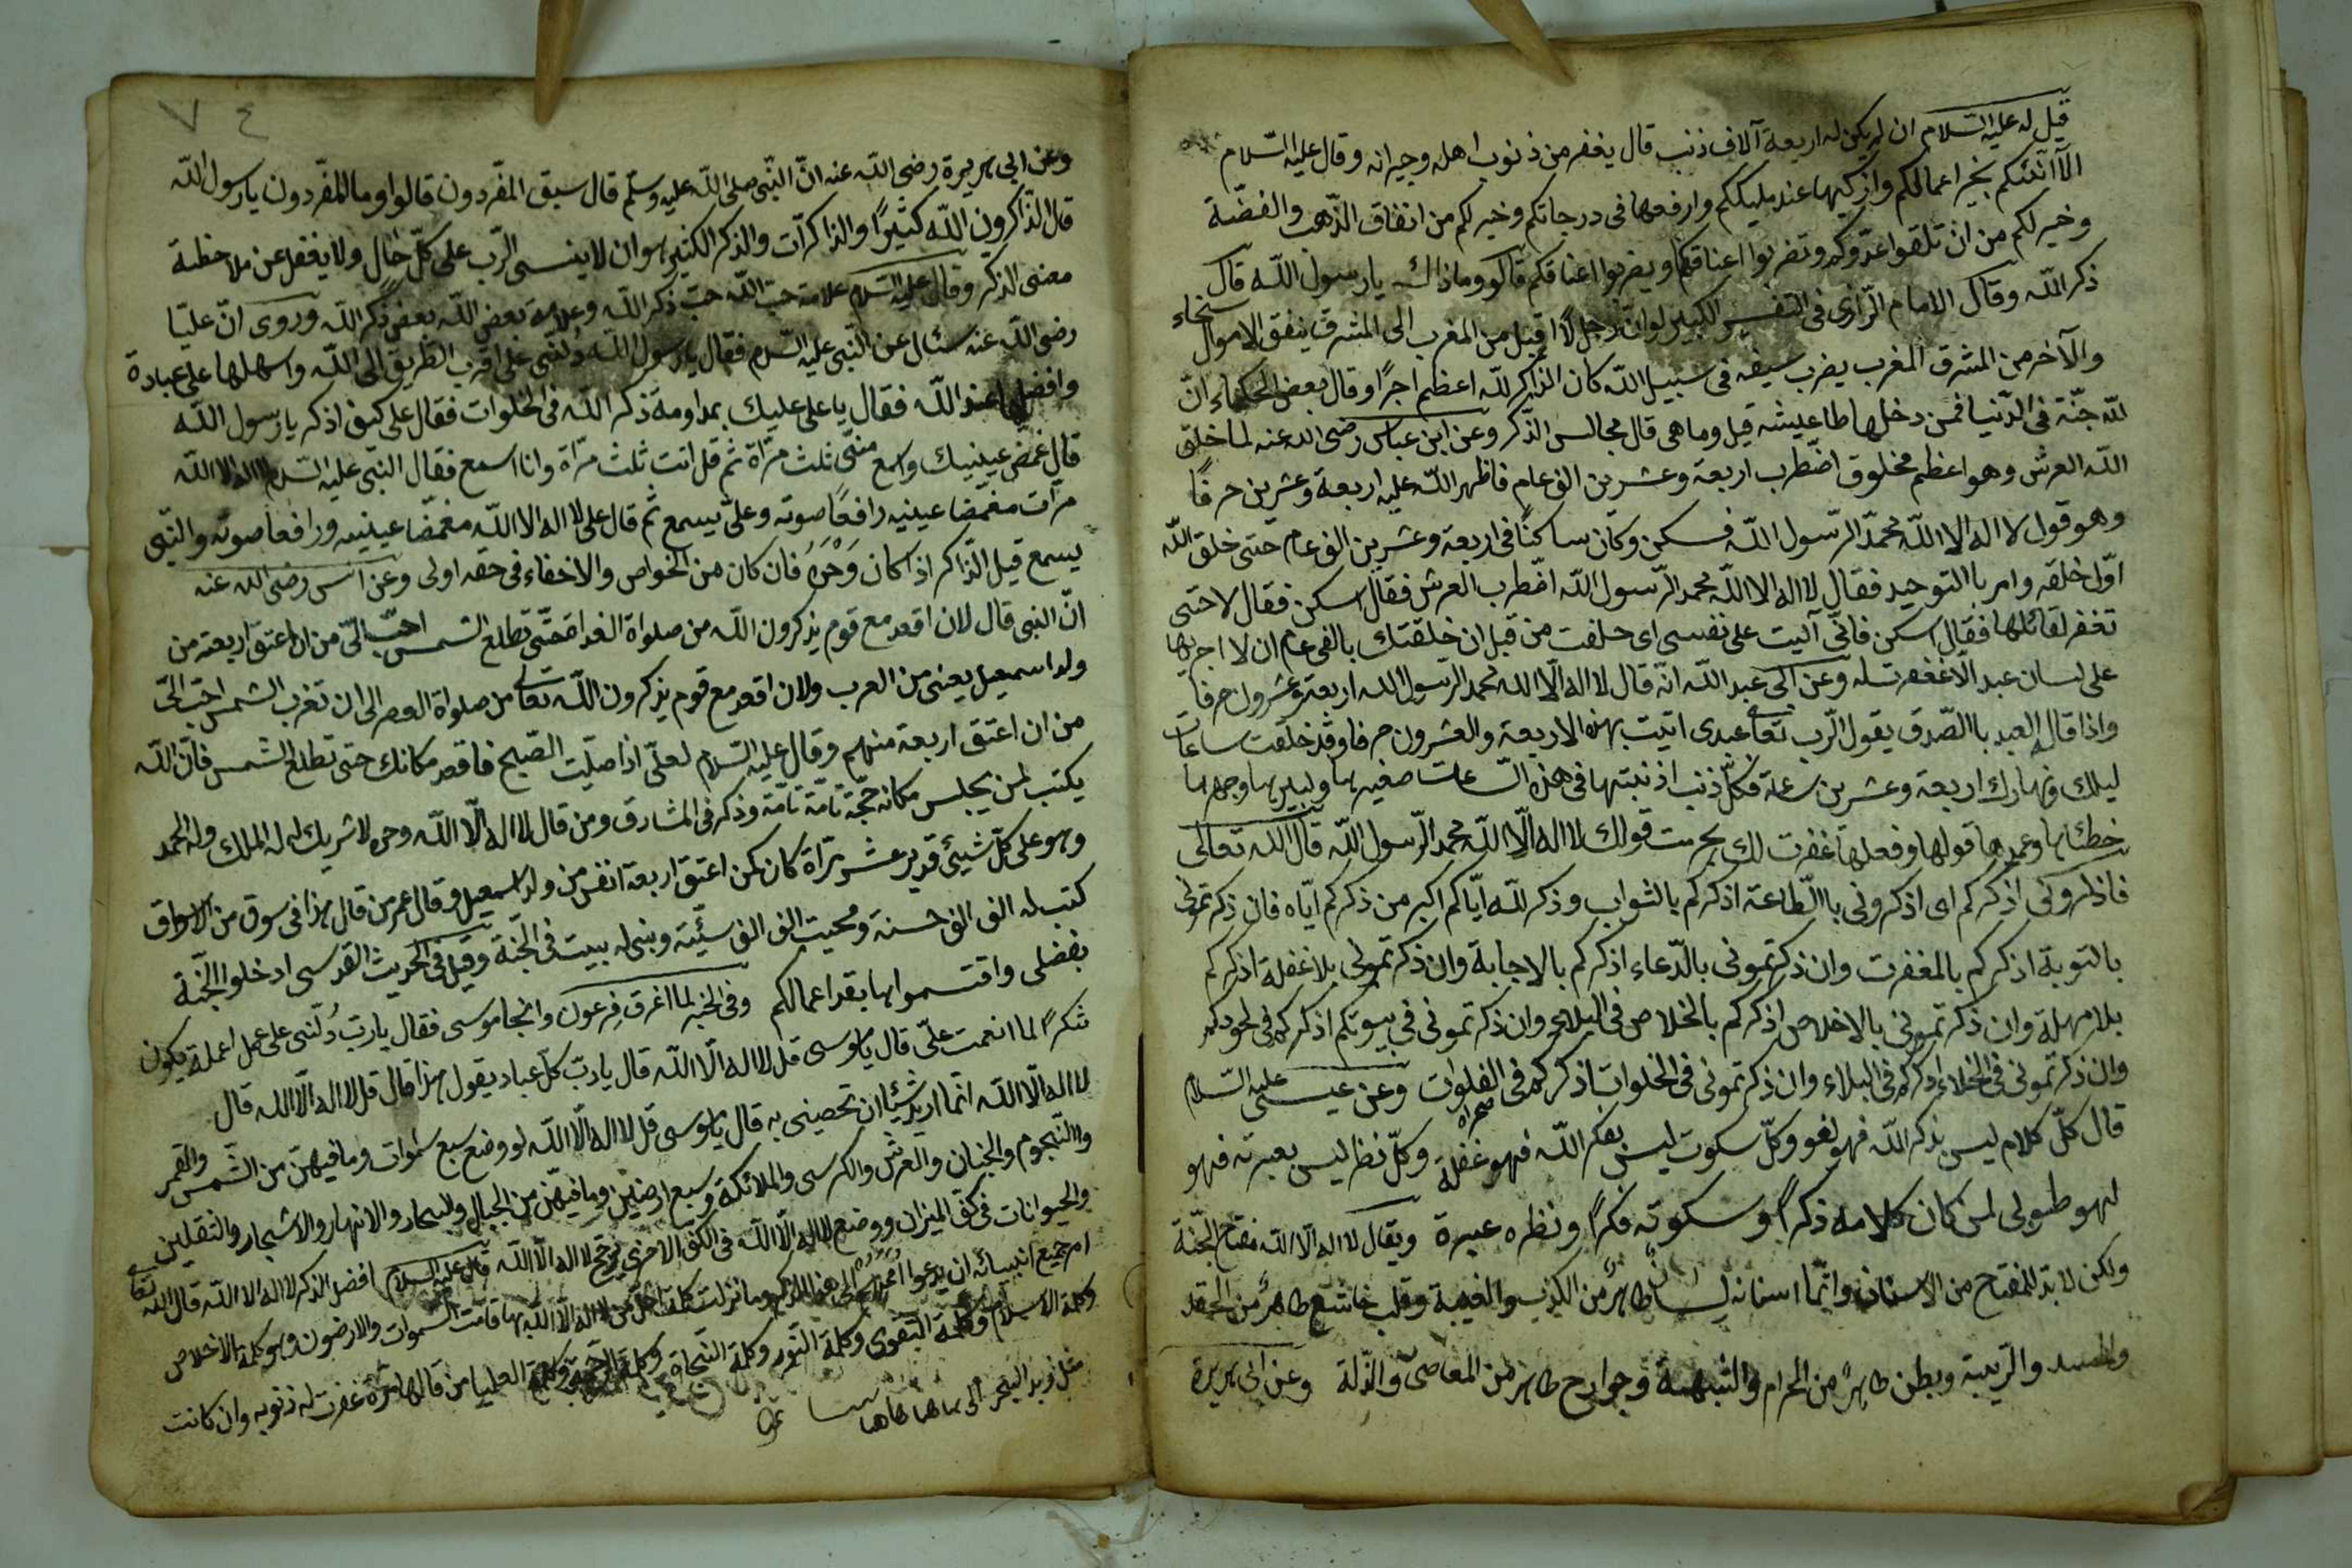 قيل له عليه السّلام ان لم يكن له اربعة آلاف ذنب قال يغفر من ذنوب اهله وجيرانه وقال عليه السّلام
الا انبّئكم بخير اعمالكم وازكيها عند مليككم وارفعها فى درجاتكم وخير لكم من انفاق الذّهب والفضّة
وخير لكم من ان تلقوا عدّوكم وتضربوا اعناقكم ويضربوا اعناقكم قالو وماذاك يا رسول اللّه قال
ذكر اللّه وقال الامام الرّازى فى التفسير الكبير لو انّ رجلًا اقبل من المغرب الى المشرق ينفق الاموال سخاء
والآخر من المشرق المغرب يضرب سيفه فى سبيل اللّه كان الذاكر للّه اعظم اجرًا وقال بعض الحكماء انّ
للّه جنّة فى الدّنيا فمن دخلها طا عيشه قيل وما هى قال مجالس الذّكر وعن ابن عباس رضى الله عنه لما خلق
اللّه العرش وهو اعظم مخلوق اضطرب اربعة وعشرين الف عام فاظهر اللّه عليه اربعة وعشرين حرفًا
وهو قول لا اله الا اللّه محمّد الرّسول اللّه فسكن وكان ساكنًا فى اربعة وعشرين الف عام حتى خلق اللّه
اوّل خلقه وامر باالتوحيد فقال لا اله الا اللّه محمد الرّسول اللّه اضطرب العرش فقال اسكن فقال لا حتى
تغفر لقائلها فقال اسكن فانّى آليت على نفسى اى حلفت من قبل ان خلقتك بالفى عام ان لا اجريها
على لسان عبد الّا غفرت له وعن ابى عبد اللّه انّه قال لا اله الّا الله محمد الرّسول الله اربعة وعشرون حرفا
واذا قال العبد باالصّدق يقول الرّب تعا عبدى اتيت بهذه الاربعة والعشرون حرفا وقد خلقت ساعات
ليلك ونهارك اربعة وعشرين ساعة فكلّ ذنب اذنبتها فى هذه السّاعات صغيرها وكبيرها وجهرها
خطئها وعمدها قولها وفعلها غفرت لك بحرمت قولك لا اله الّا اللّه محمد الرّسول اللّه قال الله تعالى
فاذكرونى اذكركم اى اذكرونى باالطّاعة اذكركم باالثواب وذكر للّه ايّاكم اكبر من ذكركم ايّاه فان ذكرتمونى
بالتوبة اذكركم بالمغفرت وان ذكرتمونى بالدّعاء اذكركم بالاجابة وان ذكرتمونى بلا غفلة اذكركم
بلا مهلة وان ذكرتمونى بالاخلاص اذكركم بالخلاص فى البلاء وان ذكرتمونى فى بيوتكم اذكركم فى لحودكم
وان ذكرتمونى فى الخلاء اذكركم فى البلاء وان ذكرتمونى فى الخلوات اذكركم فى الفلوات وعن عيسى عليه السّلام
قال كلّ كلام ليس بذكر اللّه فهو لغو وكلّ سكوت ليس بفكر اللّه فهو غفلة وكلّ نظر ليس بعبرته فهو
لهو طوبى لمن كان كلامه ذكرًا وسكوته فكرًا ونظره عبرة ويقال لا اله الّا اللّه مفتاح الجنّة
ولكن لا بدّ للمفتاح من الاسنان وانّما اسنانه لسان طاهر من الكذب والغيبة وقلب خاشع طاهر من الحقد
والحسد والرّيبة وبطن طاهر من الحرام والشّبهة وجوارح طاهر من المعاصى والذّلة وعن ابى هريرة
وعن ابى هريرة رضى اللّه عنه انّ النّبى صلى اللّه عليه وسلّم قال سبق المفردون قالوا وما المفردون يا رسول اللّه
قال الذّاكرون اللّه كثيرًا والذاكرات والذكر الكثير هو ان لا ينسى الرّب على كلّ حال ولا يغفل عن ملاحظة
معنى الذكر وقال عليه السّلام علامة حبّ اللّه حبّ ذكر اللّه وعلامة بغض اللّه بغض ذكر اللّه وروى انّ عليّا
رضى اللّه عنه سئال عن النّبى عليه السّلام فقال يا رسول اللّه دُلّنى على اقرب الطّريق الى اللّه واسهلها على عبادة
وافضلها عند اللّه فقال يا على عليك بمداومة ذكر اللّه فى الخلوات فقال على كيف اذكر يا رسول اللّه
قال غمض عينيك واسمع منّى ثلث مرّاة ثم قل انت ثلث مرّاة وانا اسمع فقال النبى عليه السّلام لا اله الا اللّه
مرّات مغمّضا عينيه رافعًا صوته وعلىّ يسمع ثم قال على لا اله الا اللّه مغمّضا عينيه ورافعا صوته والنّبى
يسمع قيل الذّاكر اذا كان وَحْدَهُ فان كان من الخواص والاخفاء فى حقه اولى وعن انس رضى الله عنه
انّ النبى قال لان اقعد مع قوم يذكرون اللّه من صلواة الغداة حتّى تطلع الشمس احبّ الىّ من ان اعتق اربعة من
ولد اسمعيل يعنى من العرب ولان اقعد مع قوم يذكرون اللّه تعالى من صلواة العصر الى ان تغرب الشمس احبّ الىّ
من ان اعتق اربعة منهم وقال عليه السّلام لعلىّ اذا صلّيت الصّبح فاقعد مكانك حتى تطلع الشمس فانّ اللّه
يكتب لمن يجلس مكانه حجّة تامّة تامّة وذكر فى المشارق ومن قال لا اله الّا اللّه وحده لا شريك له له الملك وله الحمد
وهو على كلّ شيئ قدير عشر مرّاة كان كمن اعتق اربعة انفس من ولد اسمعيل وقال عمر من قال هذا فى سوق من الاسواق
كتب له الف الف حسنة ومحيت الف الف سئيّة وبنى له بيت فى الجّنة وقيل فى الحديث القدسى ادخلوا الجّنة
بفضلى واقتسموا بها بقدر اعمالكم وفى الخبر لما اغرق فِرعون وانجا موسى فقال يا ربّ دُلّنى على عمل اعملة يكون
شكرًا لما انعمت علىّ قال يا موسى قل لا اله الّا اللّه قال يا ربّ كلّ عباد يقول هذا قال قل لا اله الّا اللّه قال
لا اله الّا اللّه انّما اريد شيئا ان تحصينى به قال يا موسى قل لا اله الّا اللّه لو وضع سبع سموات وما فيهنّ من الشّمس والقمر
واالنّجوم والجنان والعرش والكرسى والملائكة وسبع ارضين وما فيهنّ من الجبال والبحار والانهار والاشجار والثقلين
والحيوانات فى كفّ الميزان ووضع لا اله الّا اللّه فى الكفّ الاخرى يرجّح لا اله الّا اللّه قال عليه السّلام افضل الذكر لا اله الا اللّه قال اللّه تعا
امر جميع انبيائه ان يدعوا اممهم الى هذا الذكر وما نزلت كلمة اجلّ من لا اله الّا اللّه بها قامت السّموات والارضون وهو كلمة الاخلاص
وكلمة الاسلام وكلمة التقوى وكلمة النّور وكلمة النّجاة وكلمة العليا من قالها مرّة غفرت له ذنوبه وان كانت
مثل زبد البحر